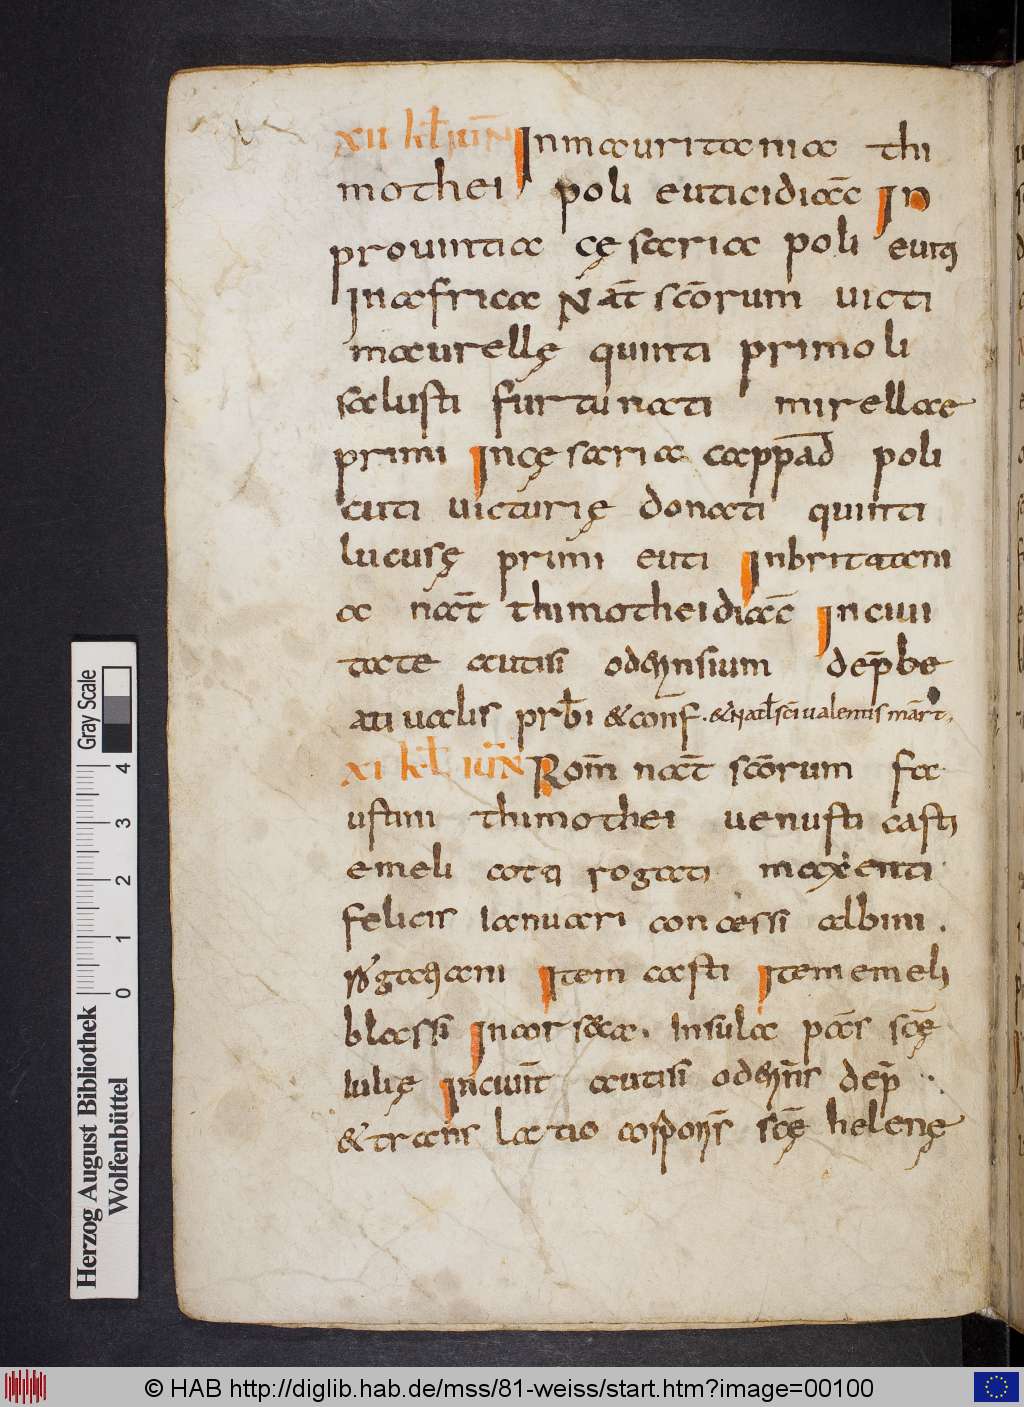 XII kł iuɴ̄ In mauritania thi
mothei poli euticidiac̄ In
prouintia cę saria poli eutiꝰ
in africa Nat̄ sc̄orum uicti
maurellę quinti primoli
salusti furtunati mirellae
primi In cę saria cappad̄ poli
cuti uicturię donati quinti
lucusę primi euti In britatani
a nat̄ thimothei diac̄ In ciui
tate autisi odernsium dep̄ be
ati ualis prb̄i & conf̄. & Natł sc̄i ualentis mār̄t
XI kł iuɴ̄ Rom̄ nat̄ sc̄orum fa
ustini thimothei uenusti casti
emeli rogati maxenti
felicis Ianuari concessi albini.
Item casti Item emeli
blassi In corseca. Insula pas̄ sc̄ę
iulię In ciuit̄ autisi odern̄s dep̄
& trans latio corporis̄ sc̄ę helenę
Gray Scale
4 3 2 1 0
Herzog August Bibliothek
Wolfenbüttel
© HAB http://diglib.hab.de/mss/81-weiss/start.htm?image=00100